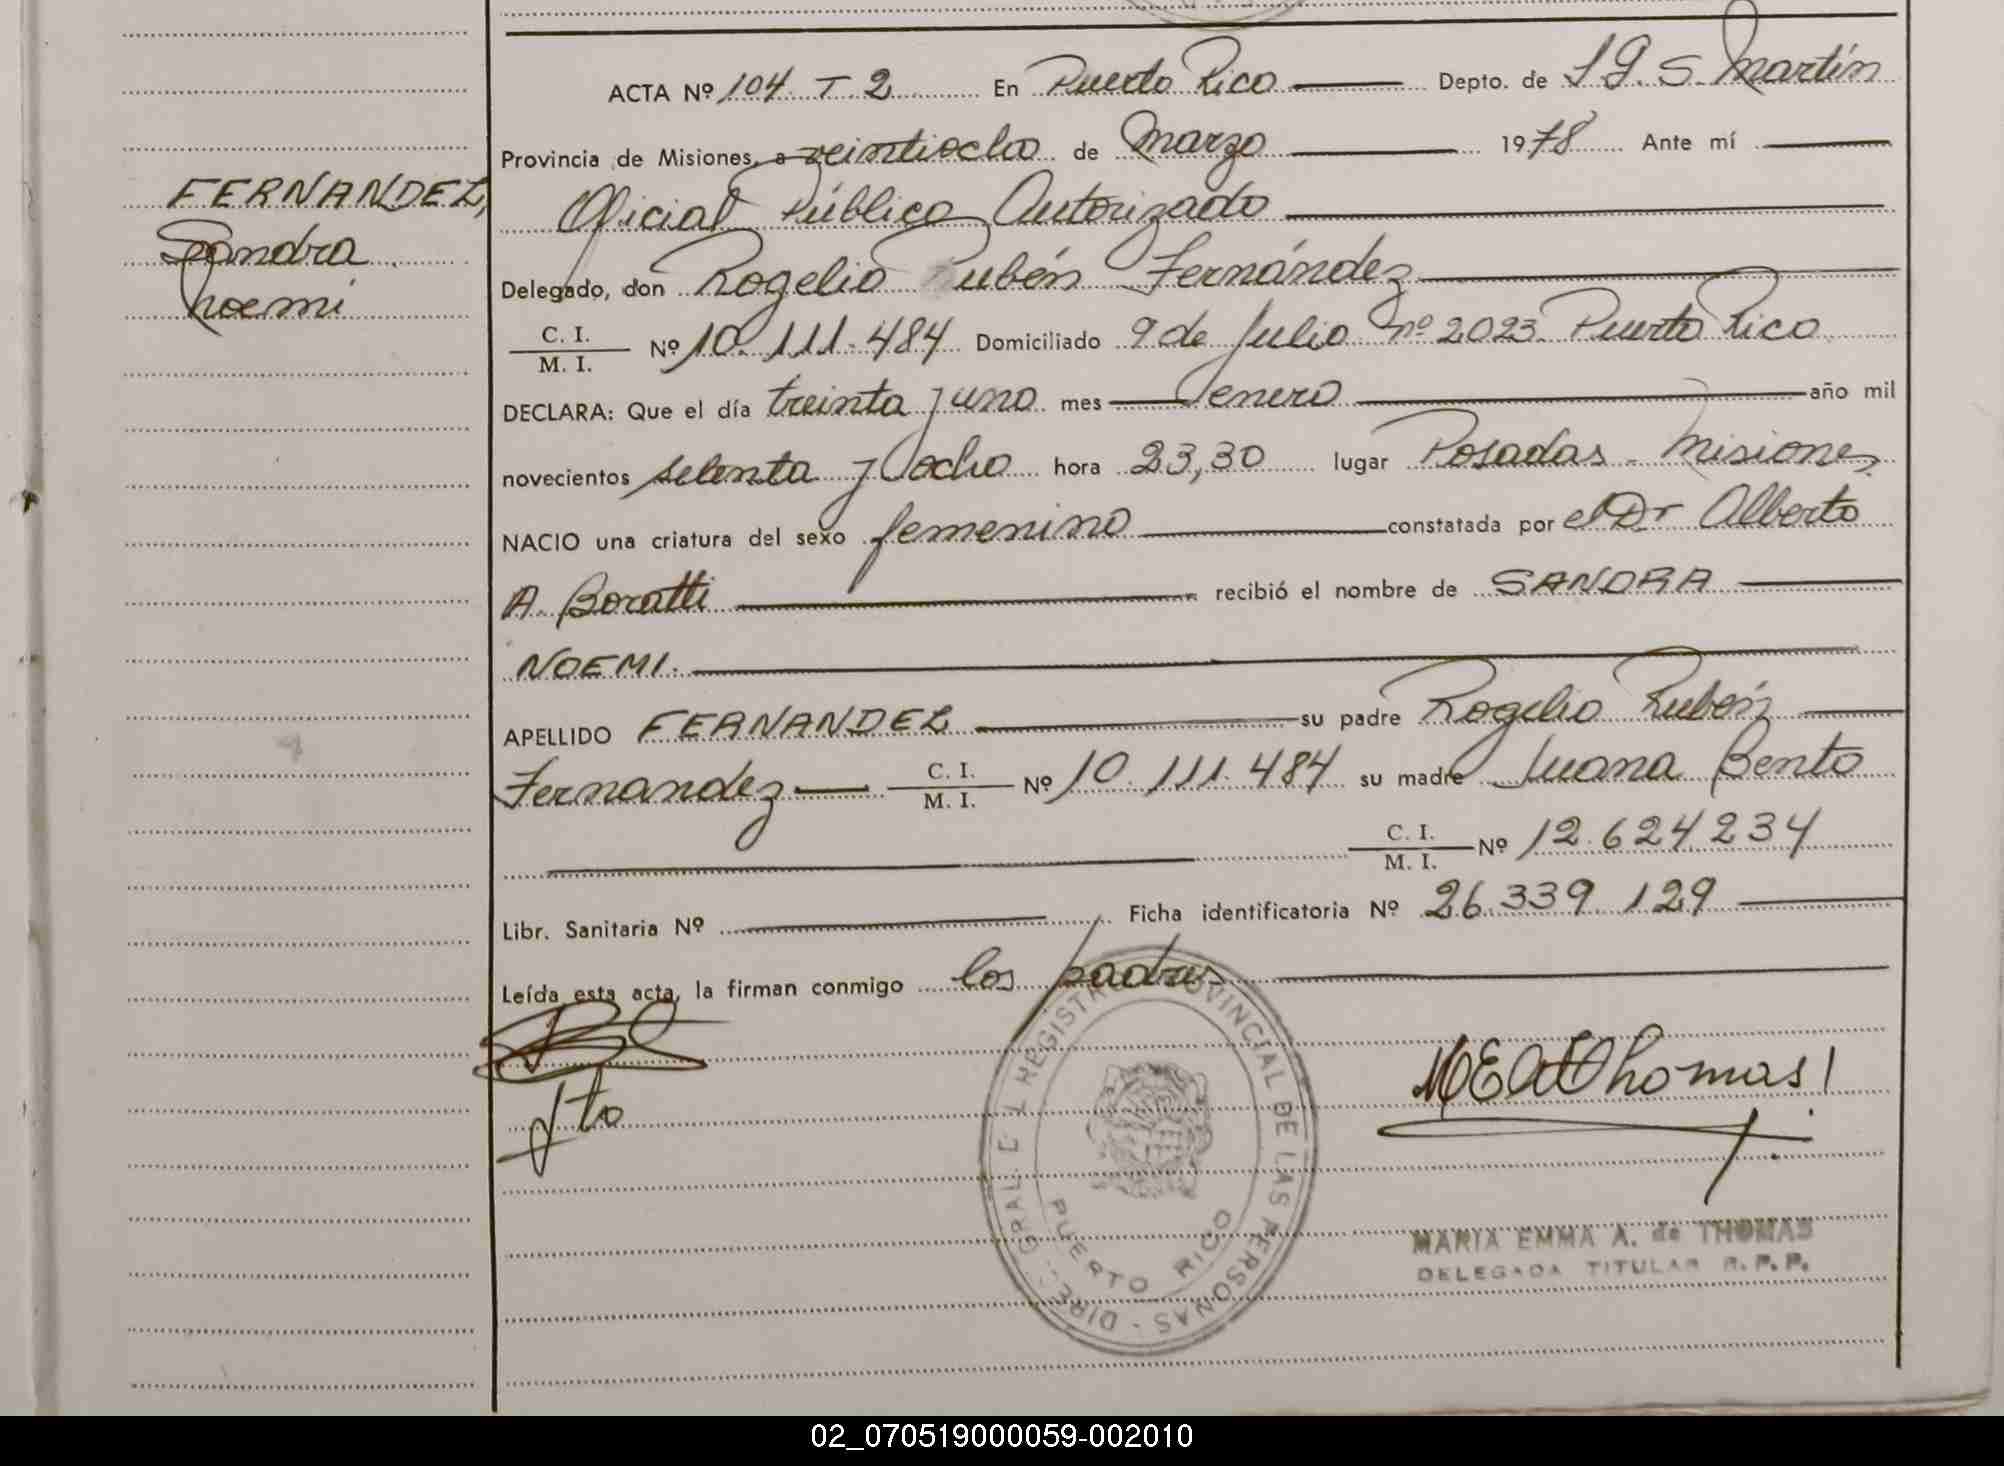 ACTA Nº 104 T 2 En Puerto Rico Depto. de L G. S. Martín
Provincia de Misiones, a veintiocho de Marzo 1978 Ante mí
Oficial Público Autorizado
FERNANDEZ,
Sandra
Noemi
Delegado, don Rogelio Rubén Fernández
C. I.
M. I. Nº 10.111.484 Domiciliado 9 de Julio nº 2023 Puerto Rico
DECLARA: Que el día treinta y uno mes enero año mil
novecientos setenta y ocho hora 23,30 lugar Posadas - Misiones
NACIO una criatura del sexo femenino constatada por el Dr Alberto
A. Boratti recibió el nombre de SANDRA
NOEMI.
APELLIDO FERNANDEZ su padre Rogelio Rubén
Fernandez C. I.
M. I. Nº 10.111.484 su madre Juana Bento
C. I.
M. I. Nº 12.624234
Libr. Sanitaria Nº Ficha identificatoria Nº 26.339.129
Leída esta acta, la firman conmigo los padres
DIREC. GRAL. DEL REGISTRO PROVINCIAL DE LAS PERSONAS -
PUERTO RICO
MEAThomas
MARIA EMMA A. de THOMAS
DELEGADA TITULAR R. P. P.
02_070519000059-002010